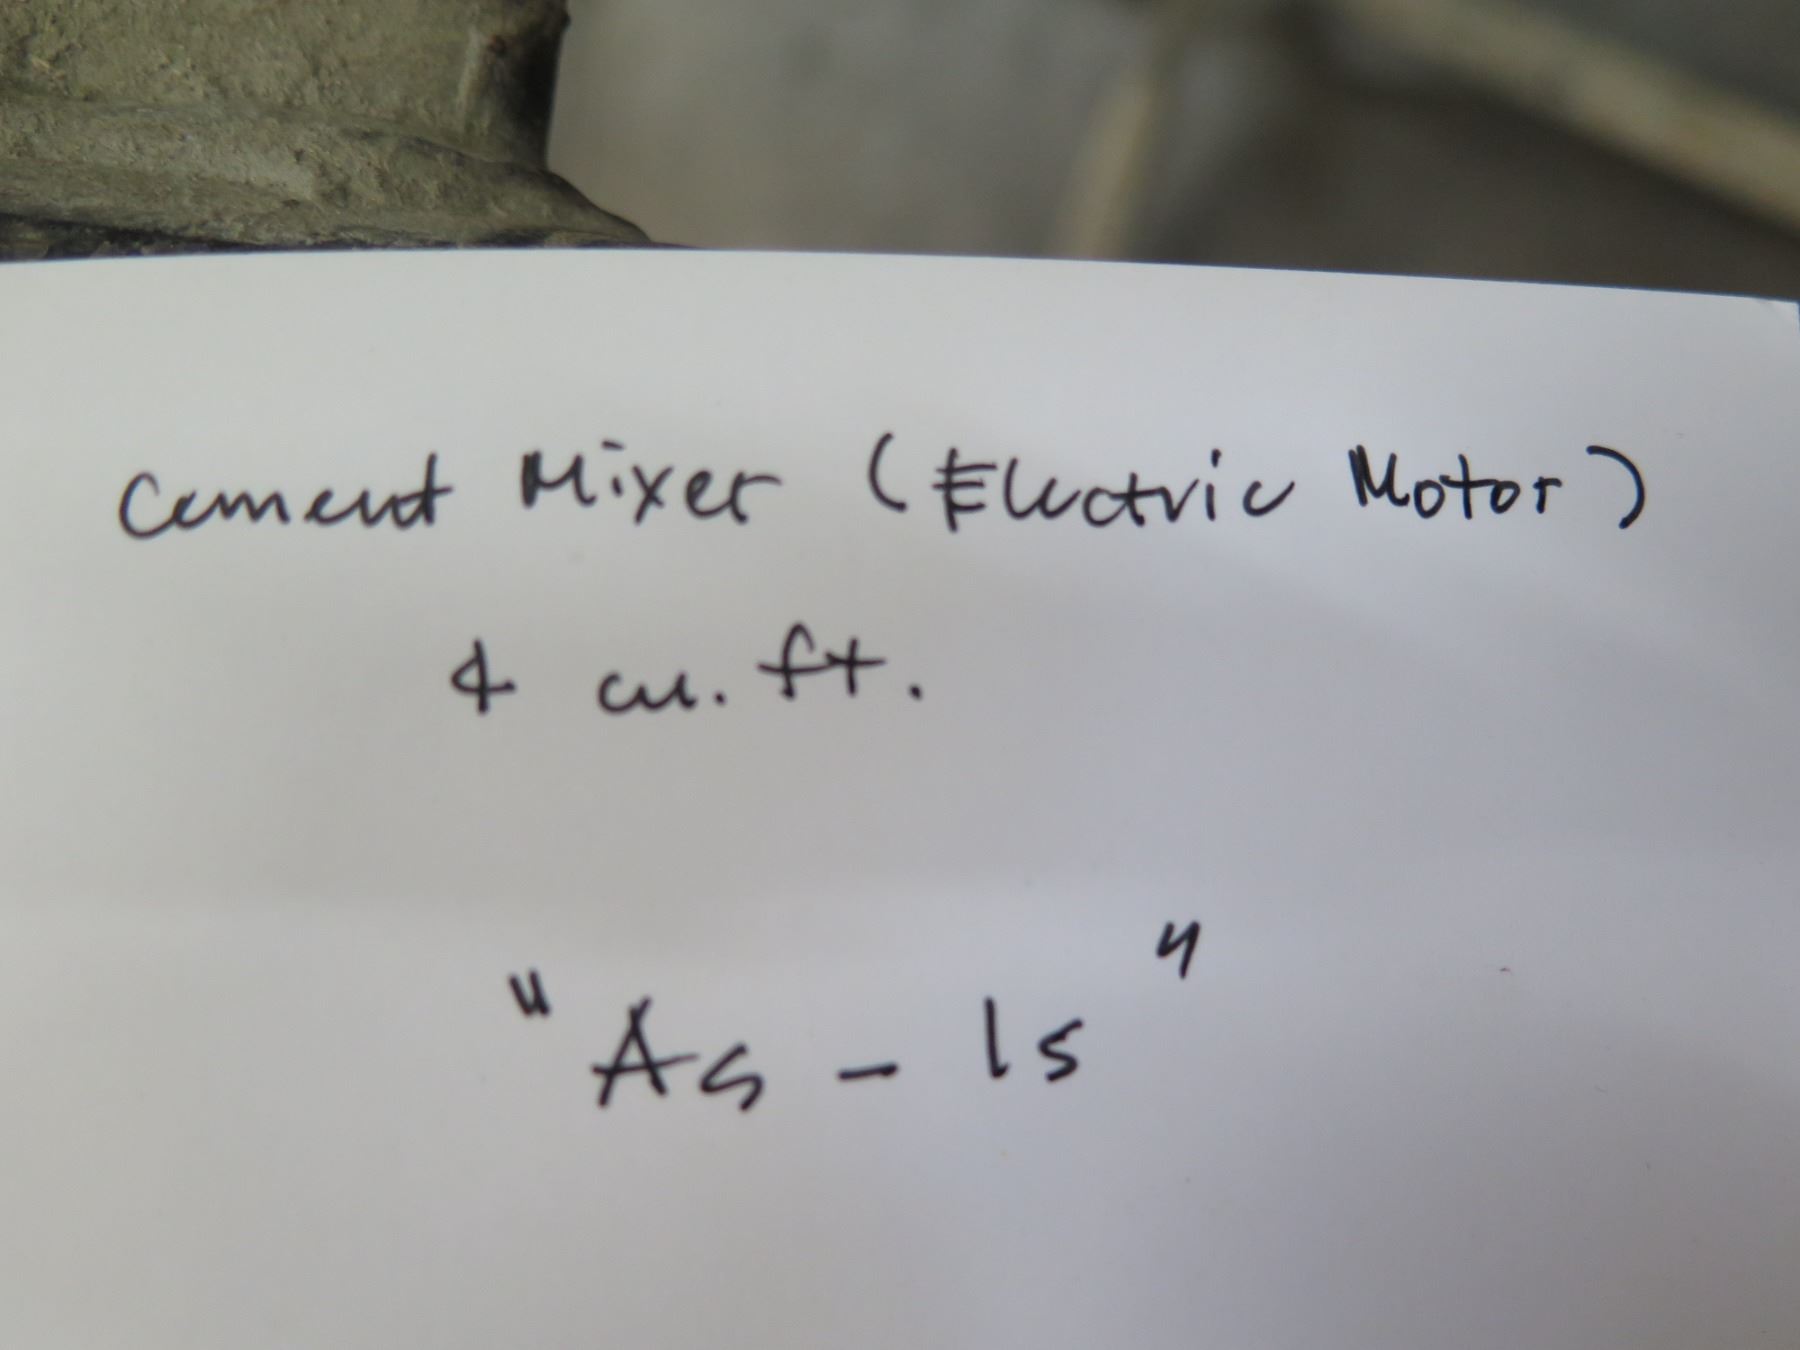 Cement Mixer (Electric Motor)
4 cu. ft.
"As - Is"